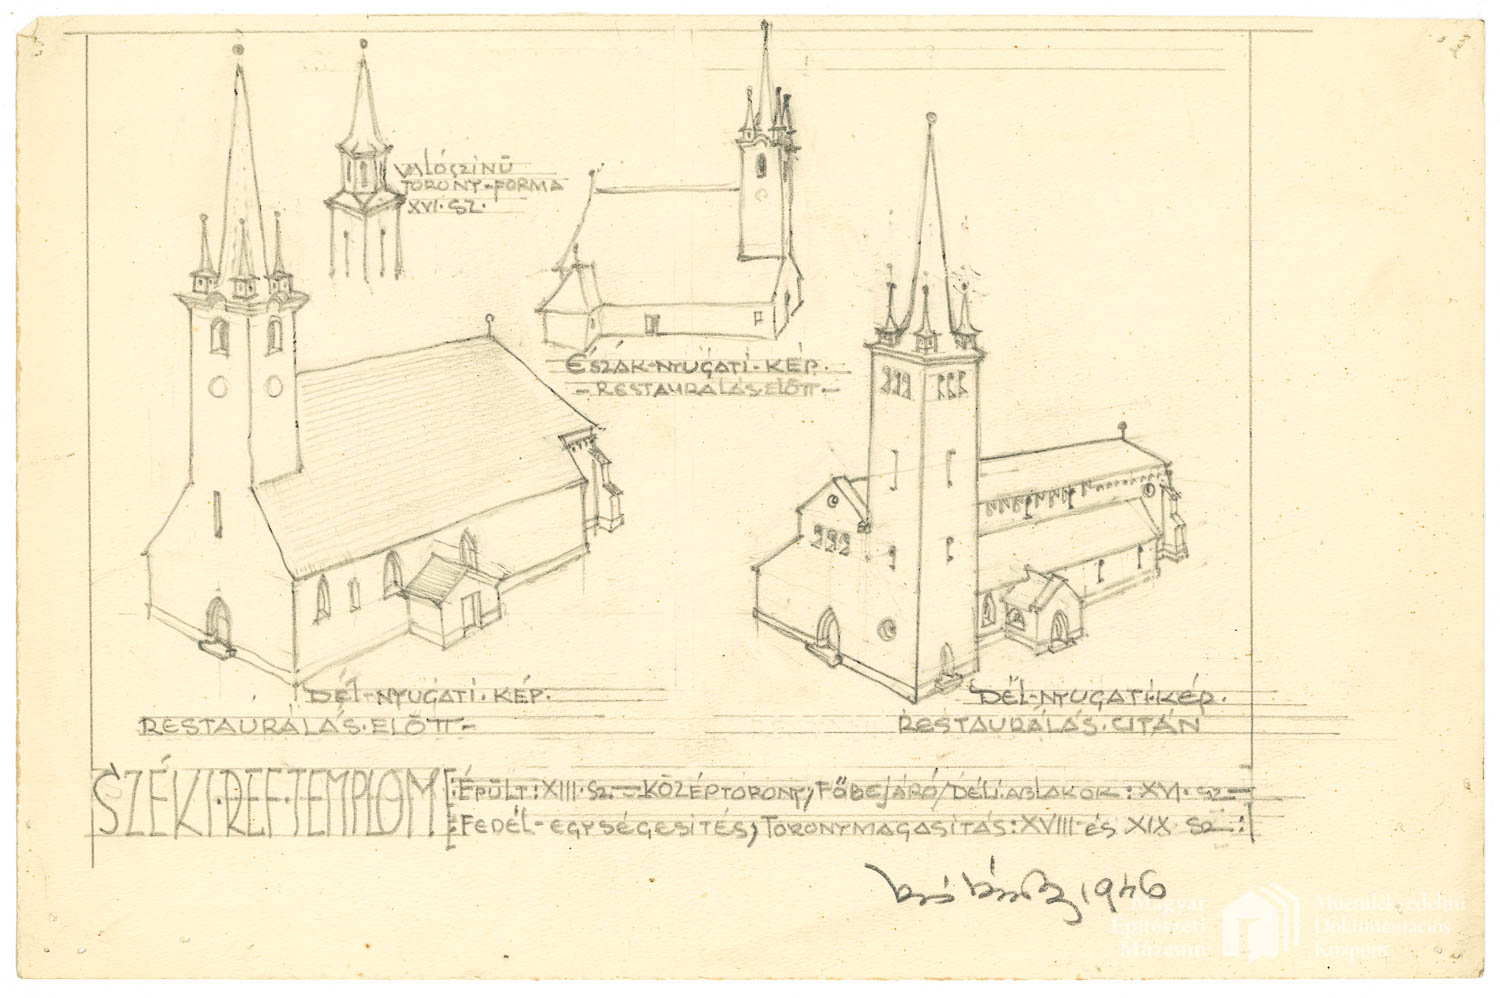 VALÓSZINŰ
TORONY-FORMA
XVI. SZ.
ÉSZAK-NYUGATI. KÉP.
- RESTAURALÁS. ELŐTT -
DÉL-NYUGATI. KÉP.
RESTAURÁLÁS. ELŐTT -
DÉL-NYUGATI. KÉP.
RESTAURÁLÁS. UTÁN
SZÉKI. REF. TEMPLOM
ÉPÜLT: XIII. SZ. - KÖZÉPTORONY, FŐBEJÁRÓ/DÉLI. ABLAKOK: XVI. SZ -
FEDÉL-EGYSÉGESITÉS, TORONYMAGASITÁS: XVIII. ÉS XIX. SZ -:
1946
Magyar
Építészeti
Múzeum
Műemlékvédelmi
Dokumentációs
Központ